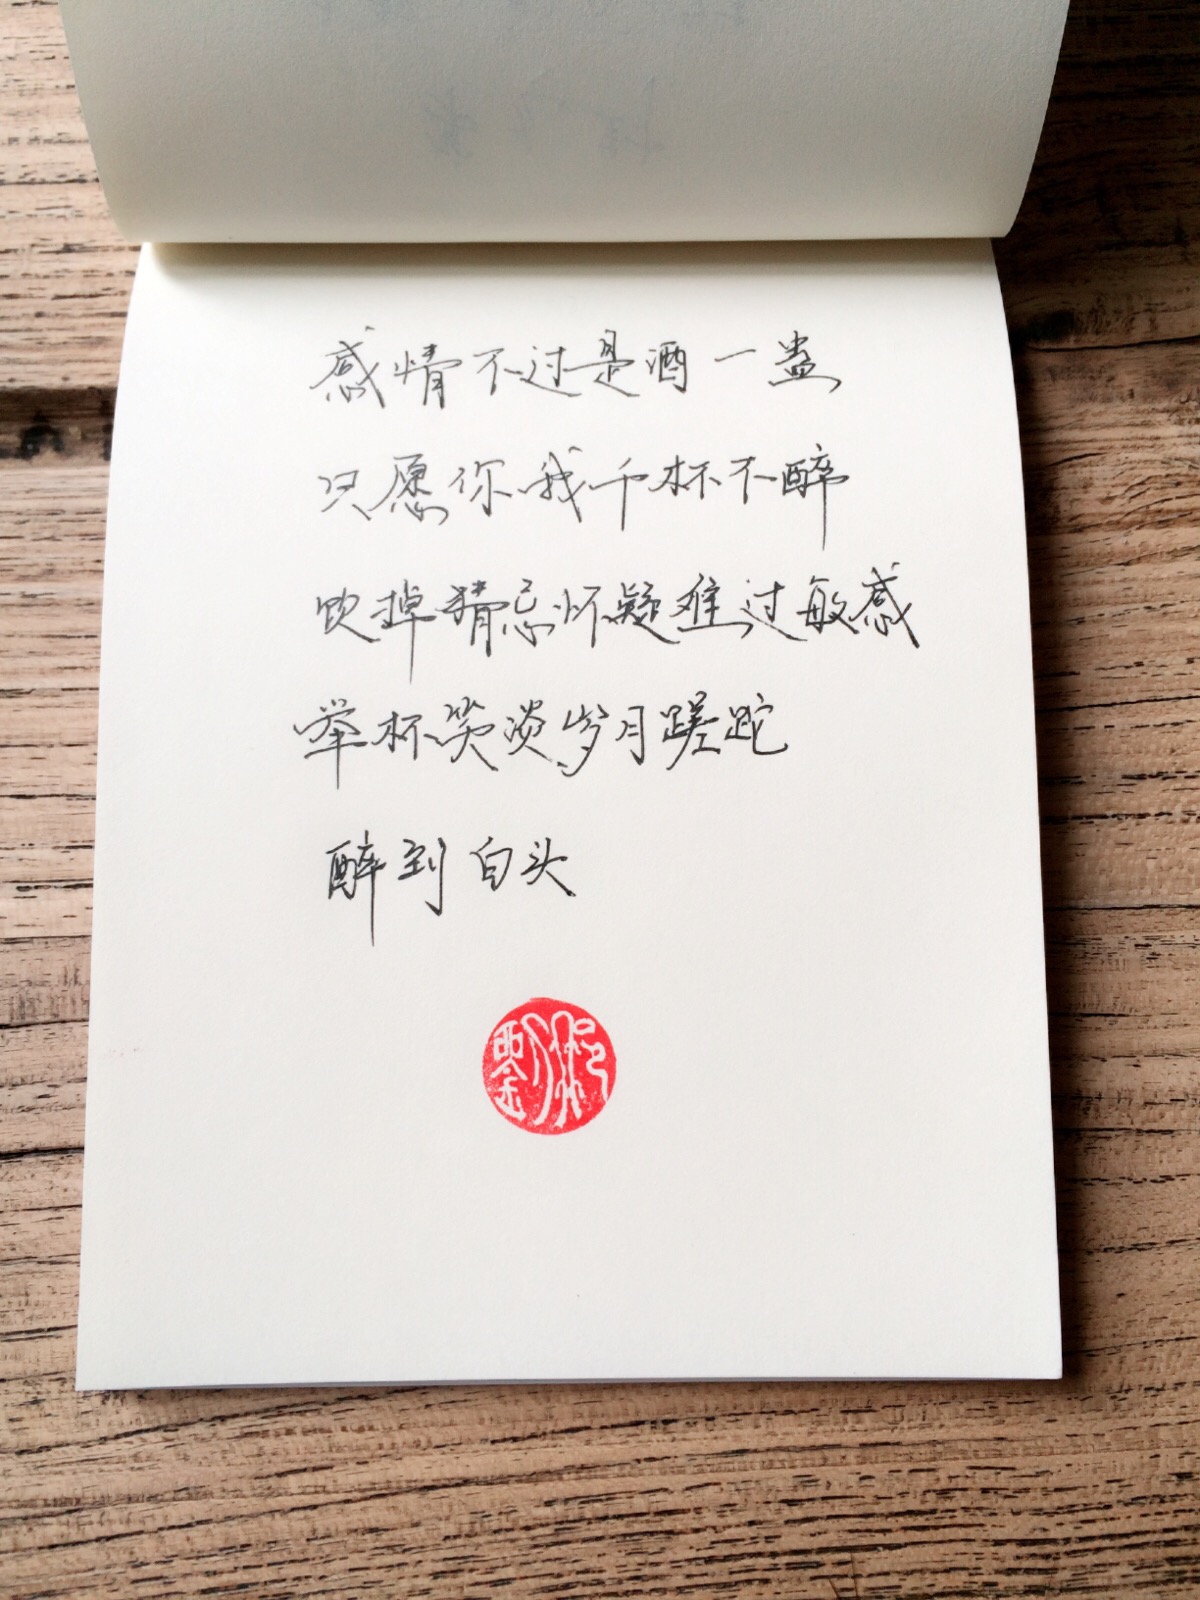 感情不过是酒一盅
只愿你我千杯不醉
饮掉猜忌怀疑难过敏感
举杯笑淡岁月蹉跎
醉到白头